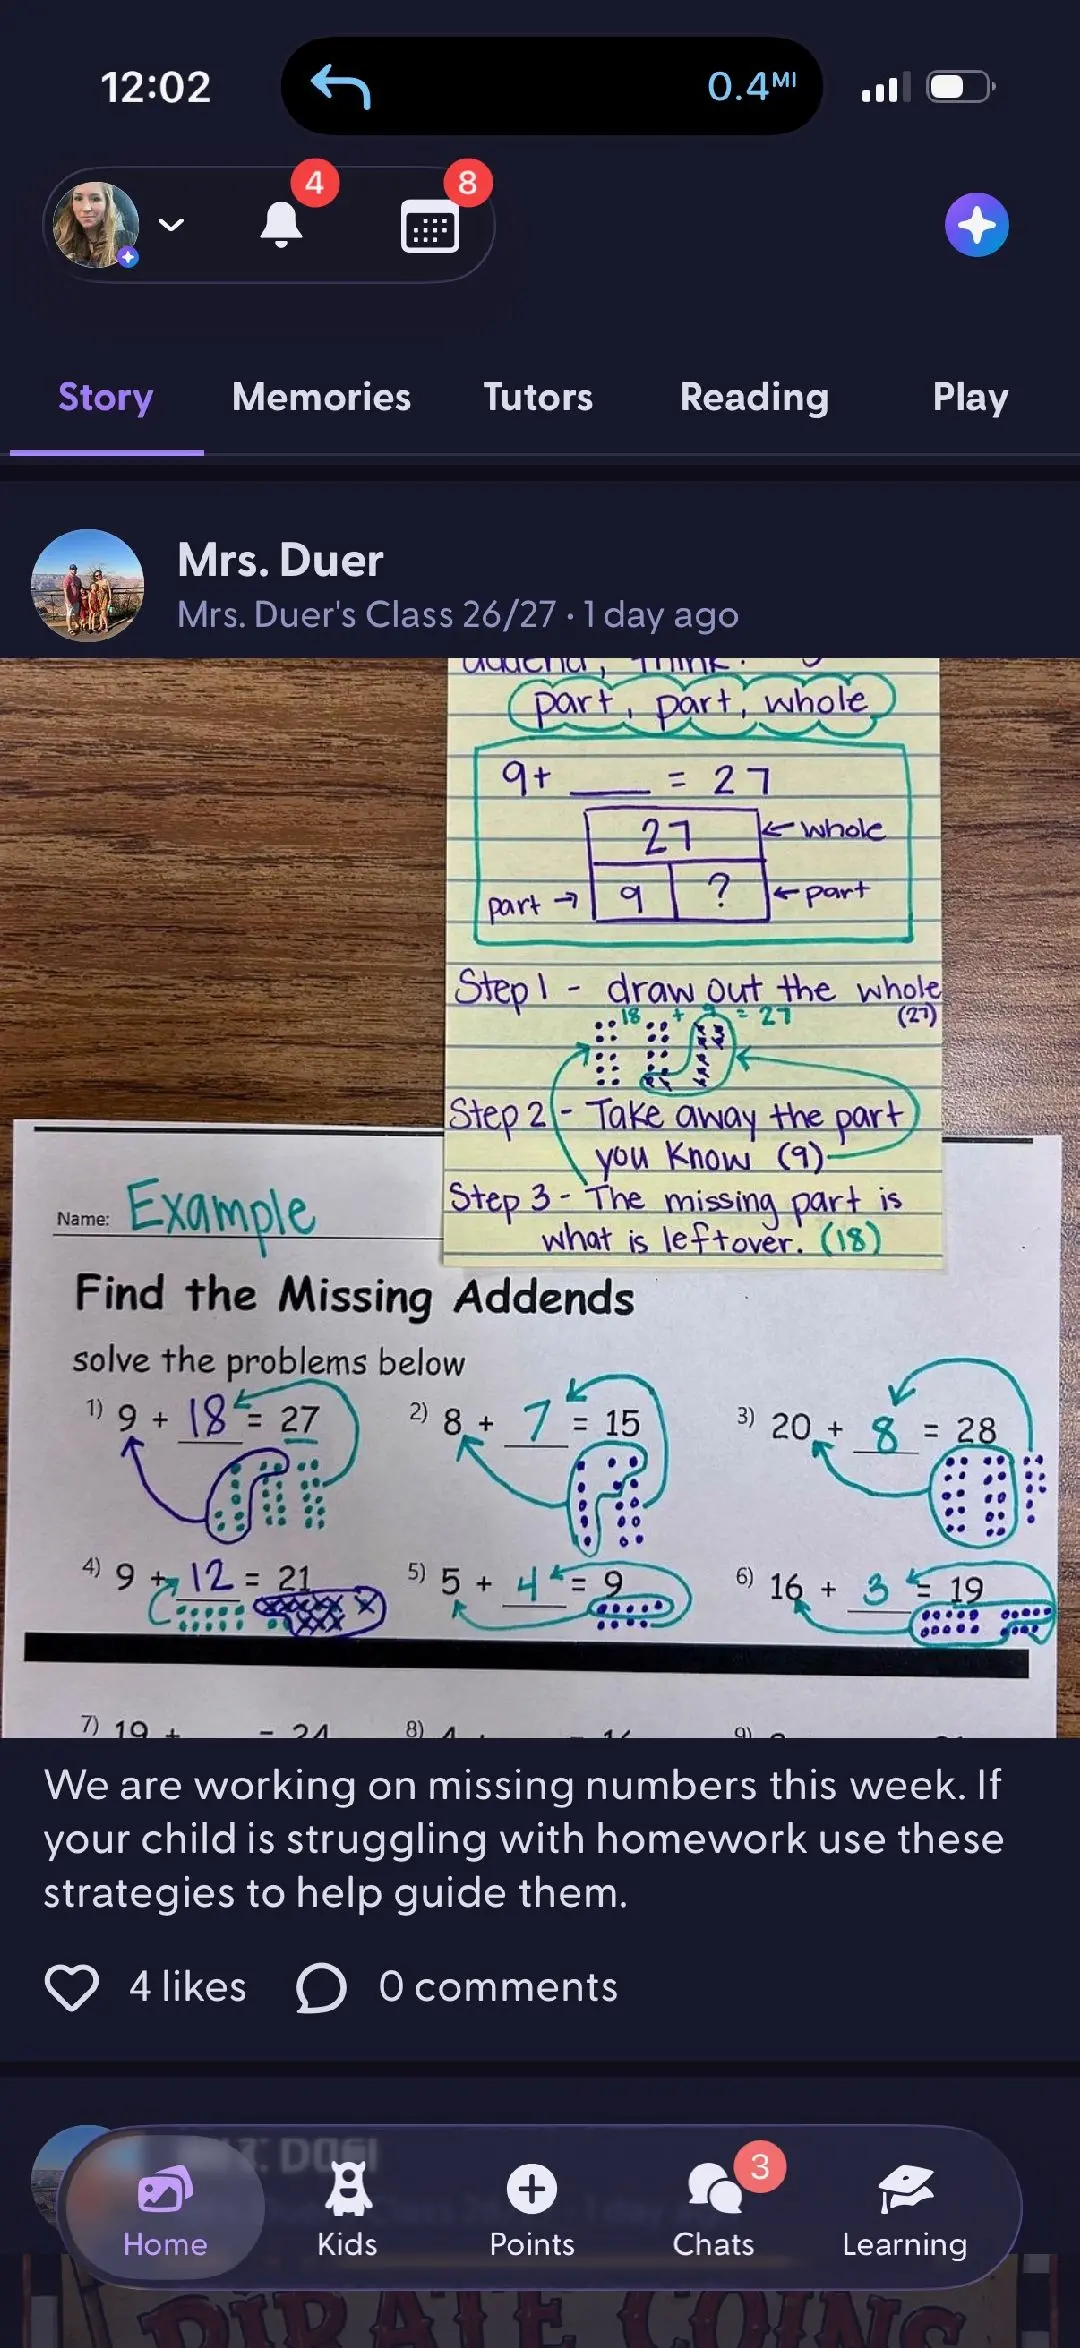 12:02
0.4 MI
4
8
Story Memories Tutors Reading Play
Mrs. Duer
Mrs. Duer's Class 26/27 · 1 day ago
addend, think:
part, part, whole
9 + ___ = 27
27 ← whole
part → 9 ? ← part
Step 1 - draw out the whole
18 + 9 = 27 (27)
Step 2 - Take away the part
you know (9)
Step 3 - The missing part is
what is leftover. (18)
Name: Example
Find the Missing Addends
solve the problems below
1) 9 + 18 = 27 2) 8 + 7 = 15 3) 20 + 8 = 28
4) 9 + 12 = 21 5) 5 + 4 = 9 6) 16 + 3 = 19
7) 19 + = 24 8) 4 + = 16 9)
We are working on missing numbers this week. If
your child is struggling with homework use these
strategies to help guide them.
4 likes 0 comments
3
Home Kids Points Chats Learning
PIRATE COINS